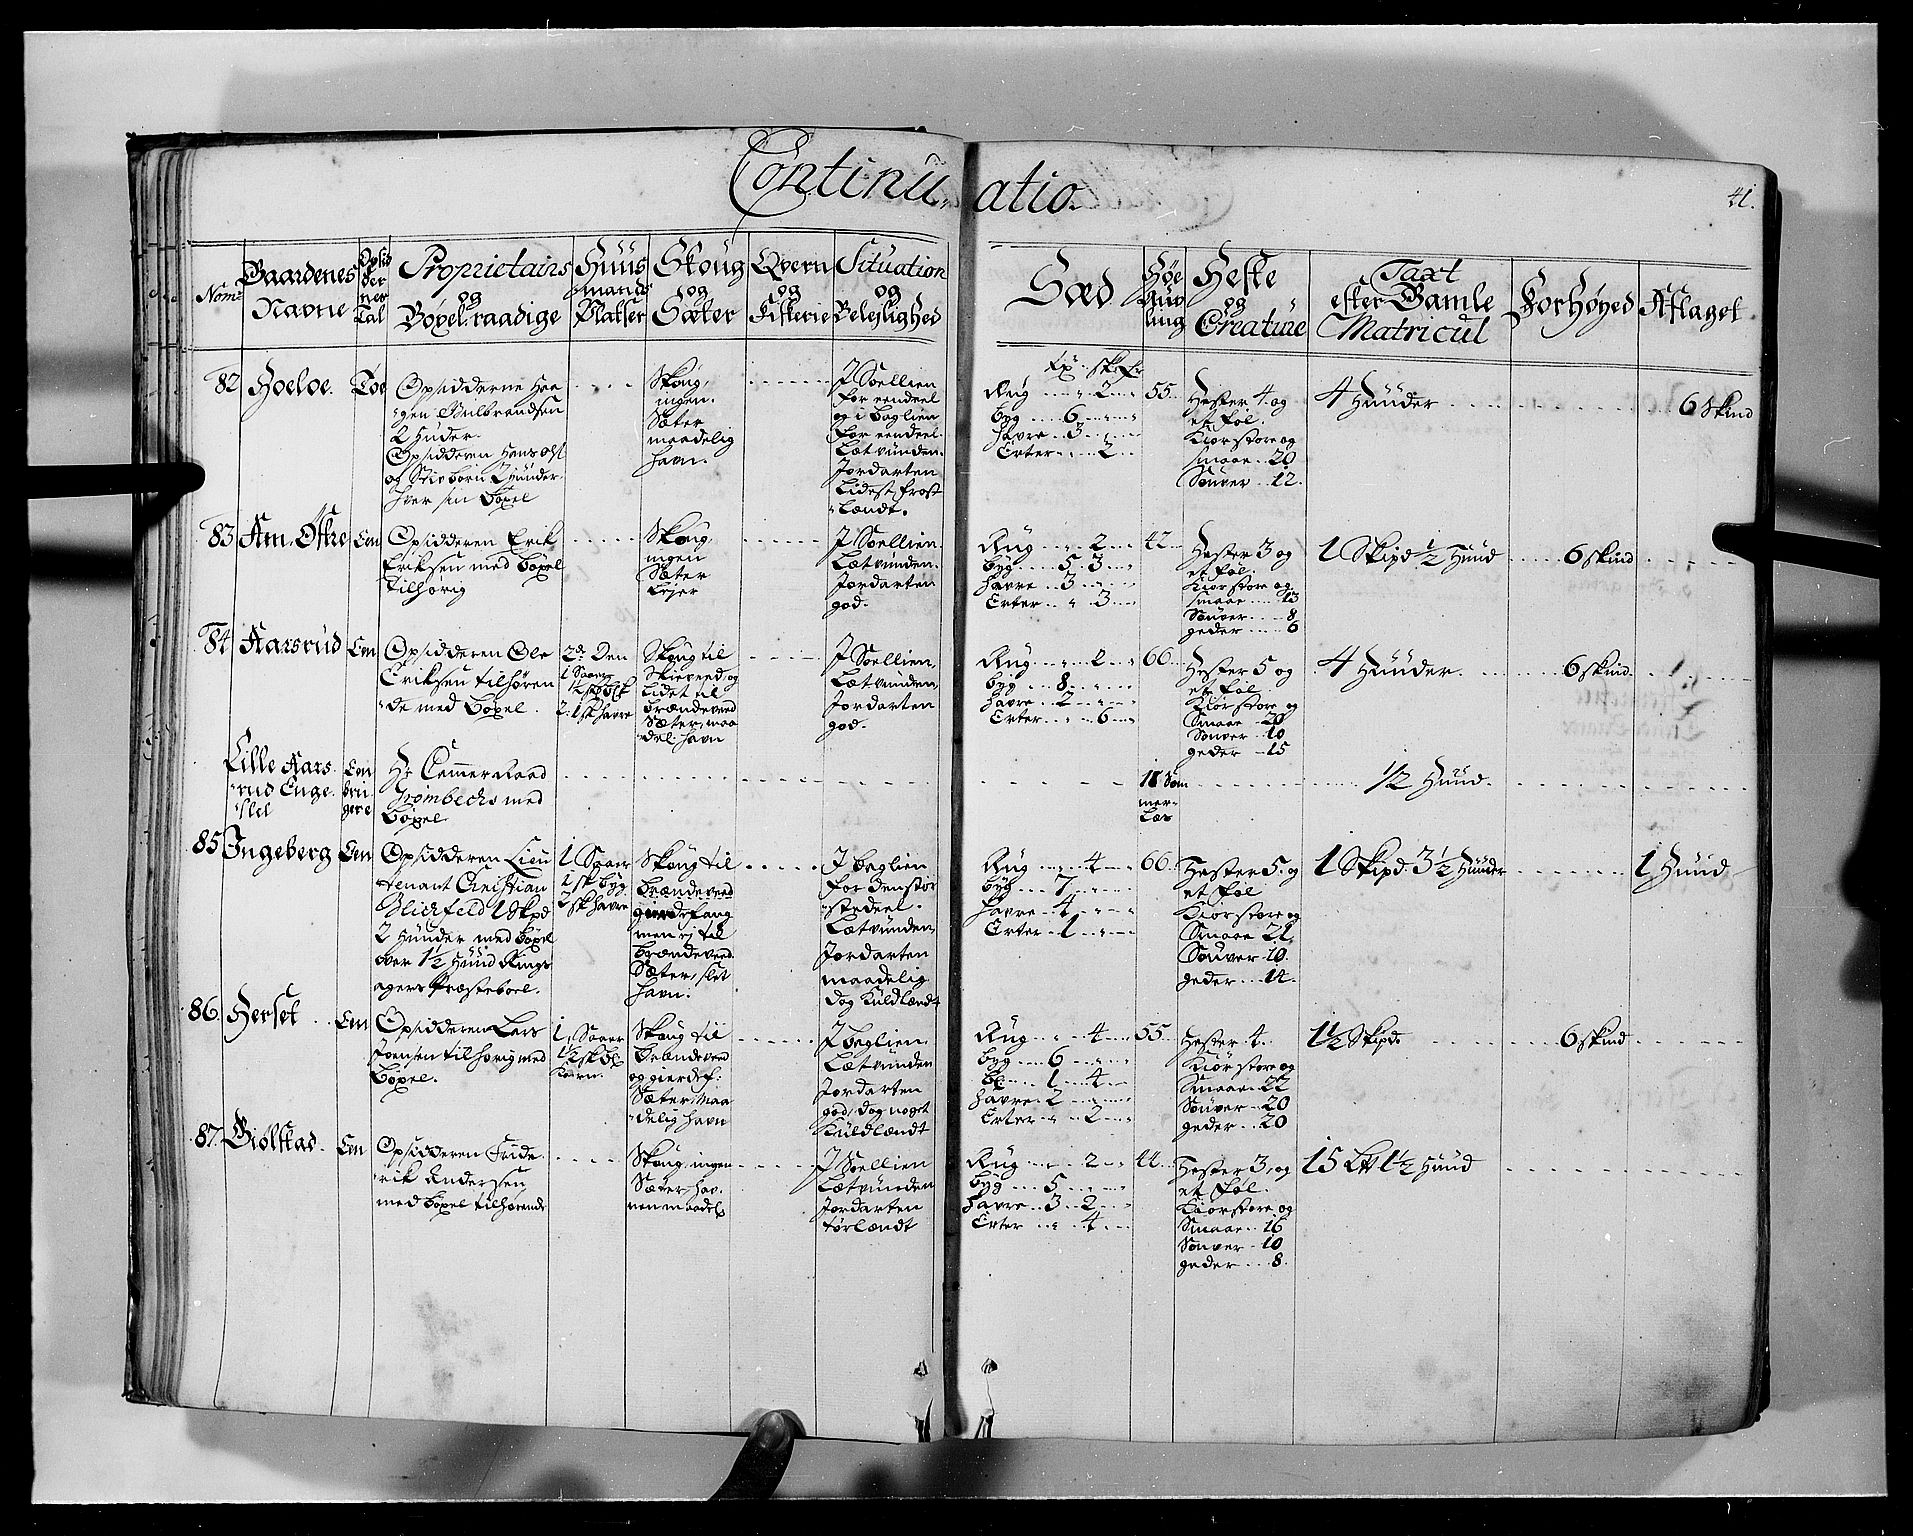 Continu- atio.
41.
Nom: Gaardenes Navne
Opsidernes Tal
Proprietairs og Bøxel-raadige
Huusmands Platser
Skoug og Sæter
Qvern og Fiskerie
Situation og Belejlighed
Sæd
Høe Auvling
Heste og Creature
Taxt efter Gamle Matricul
Forhøyed
Aflaget
82 Hoeloe. Toe
Opsidderne Haagen
2 Huder.
Opsidderen Hans
2 Hunder
hver sin bøxel
Skoug,
ingen.
Sæter
maadelig
havn.
J Soellien
for eendeel
og i baglien
for eendeel.
Lætvunden.
Jordarten
Lidet frost
-lændt.
Rug 2
byg 6
havre 3
Erter 2
55
Hester 4 og
et føl.
Kiør store og
smaae 20
Souver 12.
4 Hüüder
6 Skind
83 Am, Østre Een
Opsidderen Erik
Eriksen med bøxel
tilhørig
Skoug,
ingen
Sæter
Lejer
J Soellien.
Lætvunden.
Jordarten
god.
Rug 2
byg 5 3
havre 3
Erter 3
42
Hester 3 og
et føl.
Kiør store og
smaae 13
Souver 8
geder 6
1 Skipd 1/2 Huud
6 skind
84 Aarsrud Een
Opsidderen Ole
Eriksen tilhøren
-de med bøxel.
2de Den
1 Saaer
1/2 sk blk
2: 1 sk havre
Skoug til
Skieveed og
Lidet til
brændeveed
Sæter, maa
del: havn
J Soellien,
Lætvunden,
Jordarten
god.
Rug 2
byg 8
havre 2
Erter 6
66
Hester 5 og
et føl
Kiør store og
Smaae 20
Souver 10
geder 15
4 Hüüder.
6 skind
Lille Aars
-rud Enge
-slet
Een
bru-
gere
Hr Cammerraad
Grombechs med
bøxel
18 Som
mer-
Læs
1/2 Huud.
85 Ingeberg Een
Opsidderen Lieu
tenant Christian
Blichfeld 1 Skpd
2 Hunder med bøxel
over 1 1/2 Huud Rings
agers Præsteboel.
1 Saaer
1 sk byg
2 sk havre
Skoug til
brændeveed
gierdefang
men ej til
brændeveed
Sæter, slet
havn.
J baglien
for den stør
-stedeel.
Lætvunden,
Jordarten
maadelig
dog Kuldlændt
Rug 4
byg 7
havre 4
Erter 1
66
Hester 5. og
et føl
Kiør store og
Smaae 21
Souver 10.
geder 14.
1 Skipd. 3 1/2 Hüüder
1 Huud
86 Herset Een
Opsidderen Lars
Joensen tilhørig med
bøxel.
1, Saaer
1/2 sk bl
korn.
Skoug til
brændeveed
og gierdef:
Sæter, Maa
-delig havn
J baglien
Lætvunden
Jordarten
god, dog noget
Kuldlændt
Rug 4
byg 6
bl: 1 4
havre 2
Erter 2
55
Hester 4.
Kiør store og
Smaae 22
Souver 20
geder 20
1 1/2 Skipd
6 skind
87. Giølstad. Een
Opsidderen Fride
-rik Andersen
med bøxel tilhørende
Skoug, ingen
Sæter-hav-
nen maadel
J Soellien
Lætvunden
Jordarten
tørlændt
Rug 2
byg 5
havre 3 2
Erter 4
44
Hester 3, og
et føl.
Kiør store og
Smaae 16
Souver 10
geder 8.
15 L℔ 1 1/2 Huud